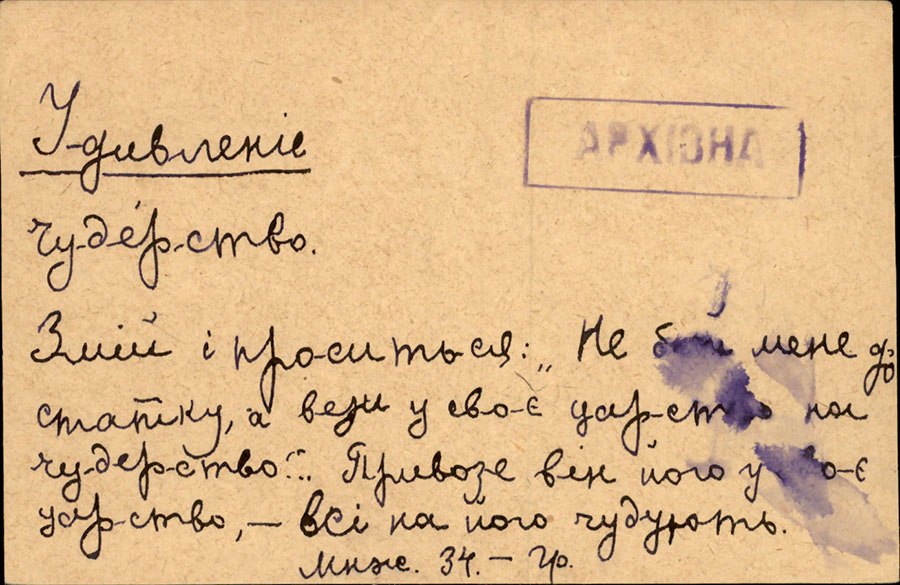 Удивленіє
АРХІВНА
чуде́рство.
Змій і проситься: „Не бий мене до
статку, а вези у своє царство на
чудерство"... Привозе він його у своє
царство, — всі на його чудують.
Мнж. 34. — Гр.